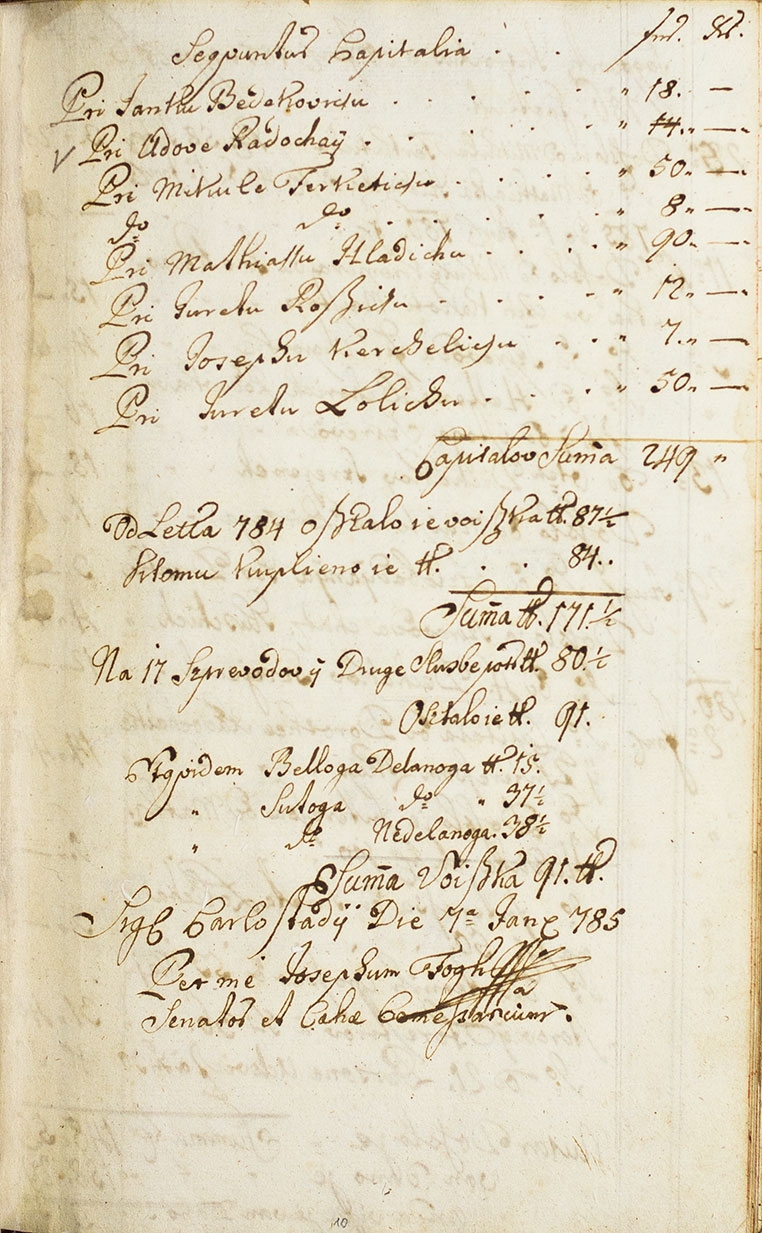 Seqvuntur Capitalia . . fnr. xr.
Pri Janku Bedekovichu . . . . . " 18. —
Pri Udove Radochaÿ . . . . . " 14." —"
Pri Mikule Ferketichu . . . . " 50" —"
do do . . . . . " 8" —"
Pri Mathiassu Hladichu . . . . " 90" —"
Pri Juretu Roßichu . . . . " 12" —"
Pri Josephu Kerchelichu . . . " 7." —
Pri Juretu Lolichu . . . . " 50" —"
Capitalov Sum̄a 249 "
Od Letta 784 oßtalo ie voißka ℔. 87½
k'tomu kuplieno ie ℔. . . 84..
Sum̄a ℔. 171.½
Na 17 Szprevodov ÿ Druge Slusbe ℔. 80.½
Osztalo ie ℔. 91.
Belloga Delanoga ℔. 15.
" Sutoga do " 37½
" do Nedelanoga. 38½
Sum̄a Voißka 91. ℔.
Sigl Carlostadÿ Die 7a Jan. 785
Per me Josephum Fogh
Senator et
10